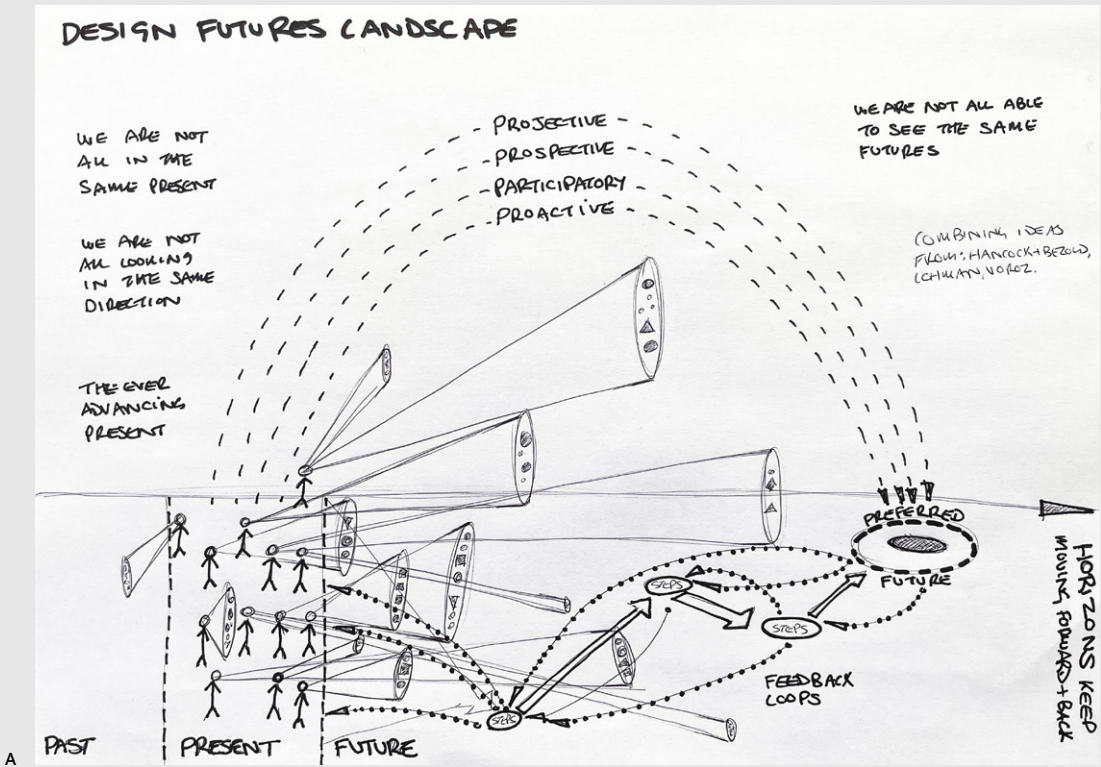 DESIGN FUTURES LANDSCAPE
WE ARE NOT
ALL IN THE
SAME PRESENT
WE ARE NOT
ALL LOOKING
IN THE SAME
DIRECTION
THE EVER
ADVANCING
PRESENT
PROJECTIVE
PROSPECTIVE
PARTICIPATORY
PROACTIVE
WE ARE NOT ALL ABLE
TO SEE THE SAME
FUTURES
COMBINING IDEAS
FROM: HANCOCK+BEZOLD,
VOROZ.
PREFERRED
FUTURE
STEPS
STEPS
STEPS
FEEDBACK
LOOPS
HORIZONS KEEP
MOVING FORWARD + BACK
PAST
PRESENT
FUTURE
A